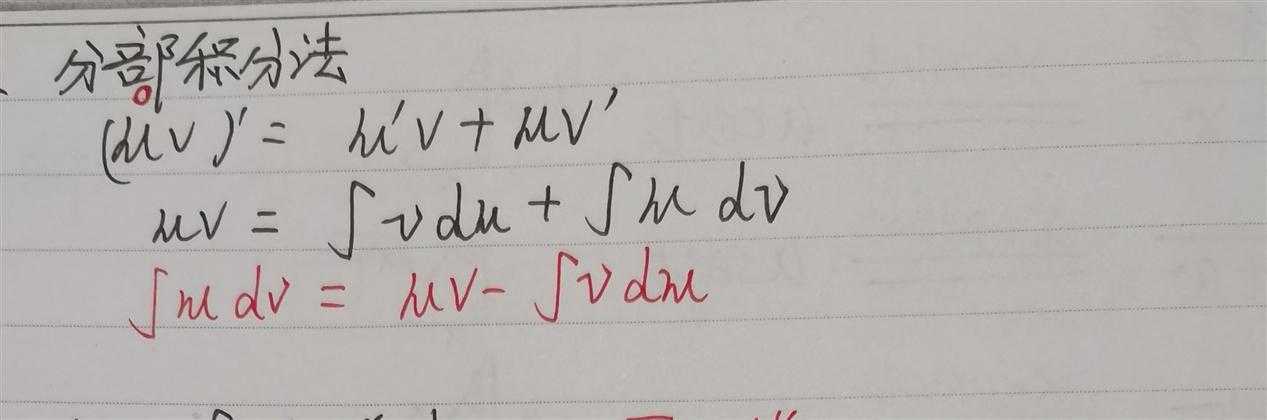 分部积分法
(uv)' = u'v + uv'
uv = ∫v du + ∫u dv
∫u dv = uv - ∫v du